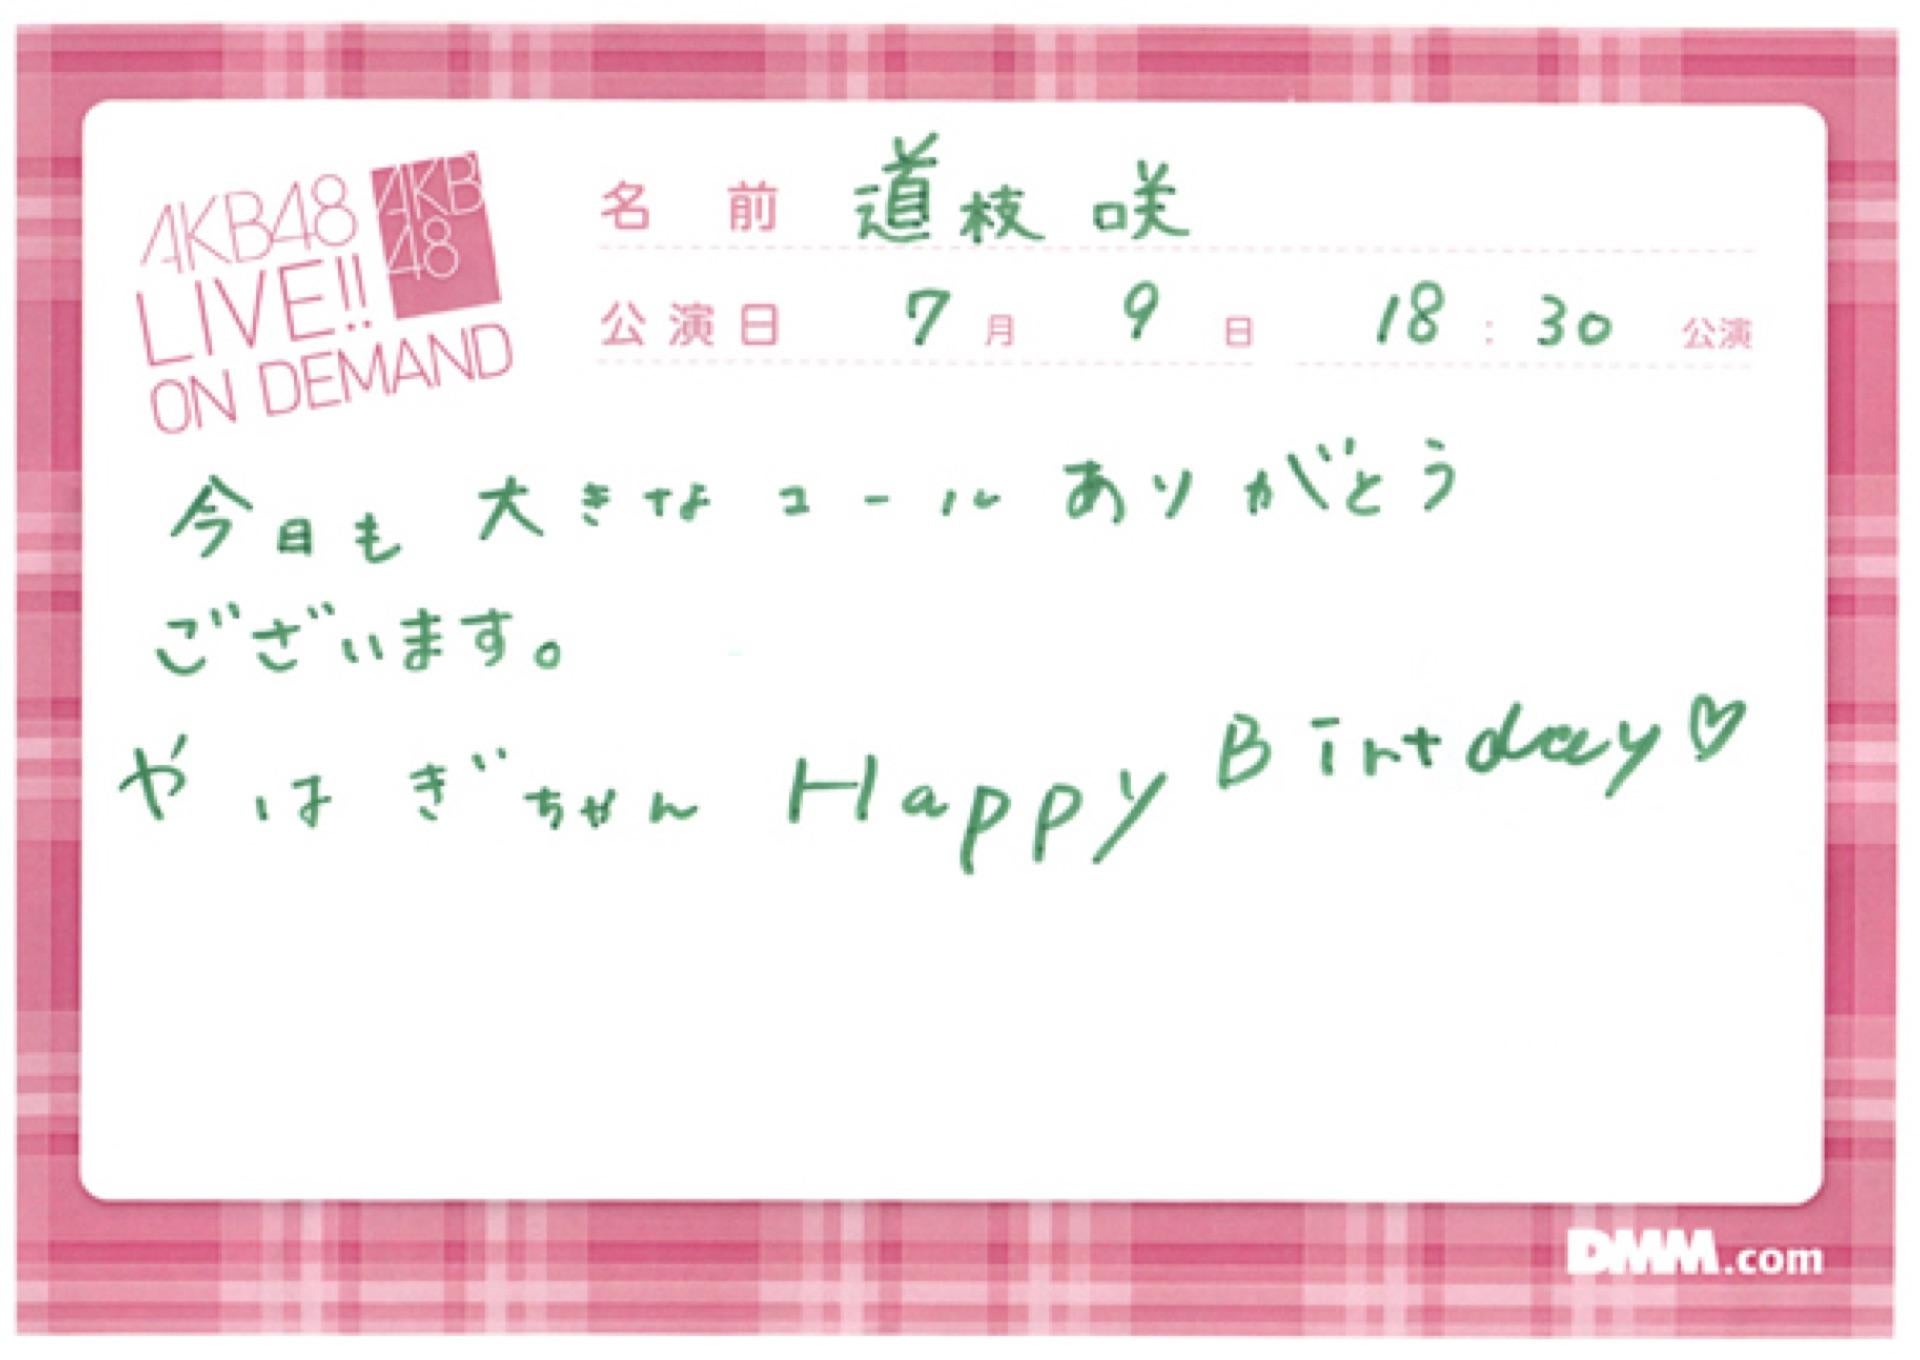 AKB48
LIVE!!
ON DEMAND
AKB
48
名前 道枝 咲
公演日 7月 9日 18:30 公演
今日も 大きなコールありがとう
ございます。
やはぎちゃん Happy Birtday♡
DMM.com